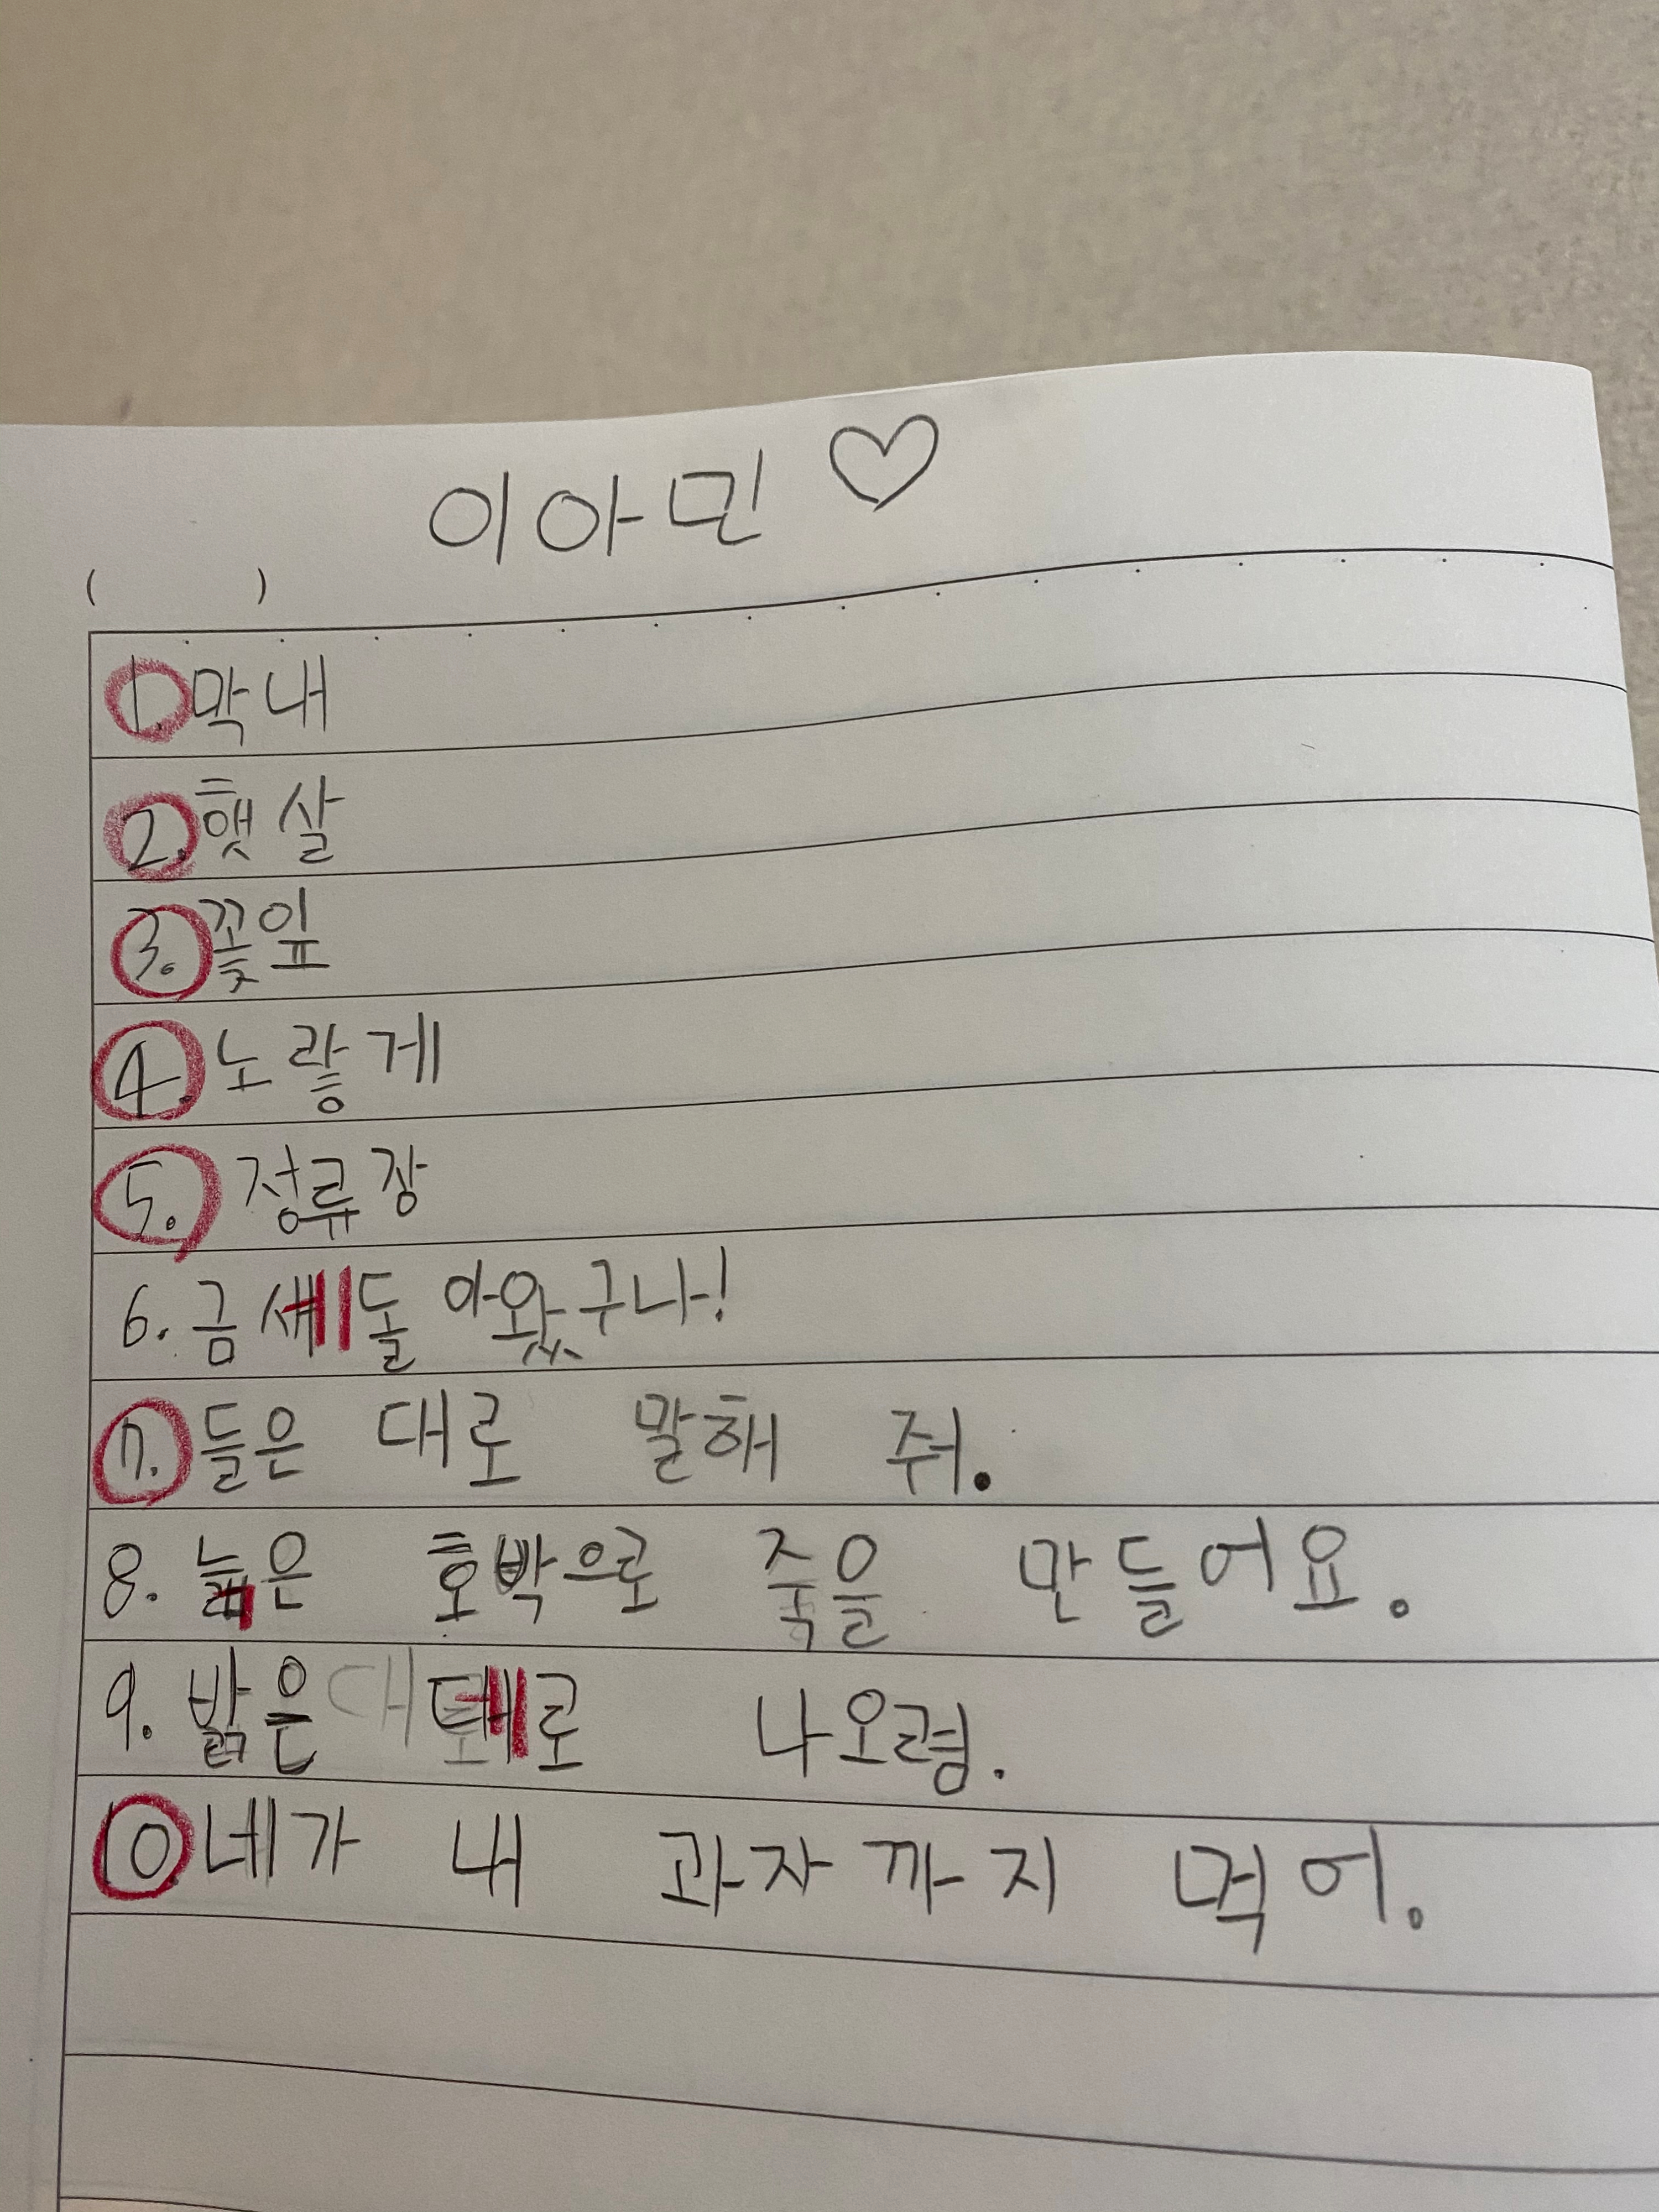 이아민♡
( )
1. 막내
2. 햇살
3. 꽃잎
4. 노랗게
5. 정류장
6. 금세돌 아왔구나!
7. 들은 대로 말해 줘.
8. 늙은 호박으로 죽을 만들어요.
9. 밝은 데로 나오렴.
10 네가 내 과자까지 먹어.